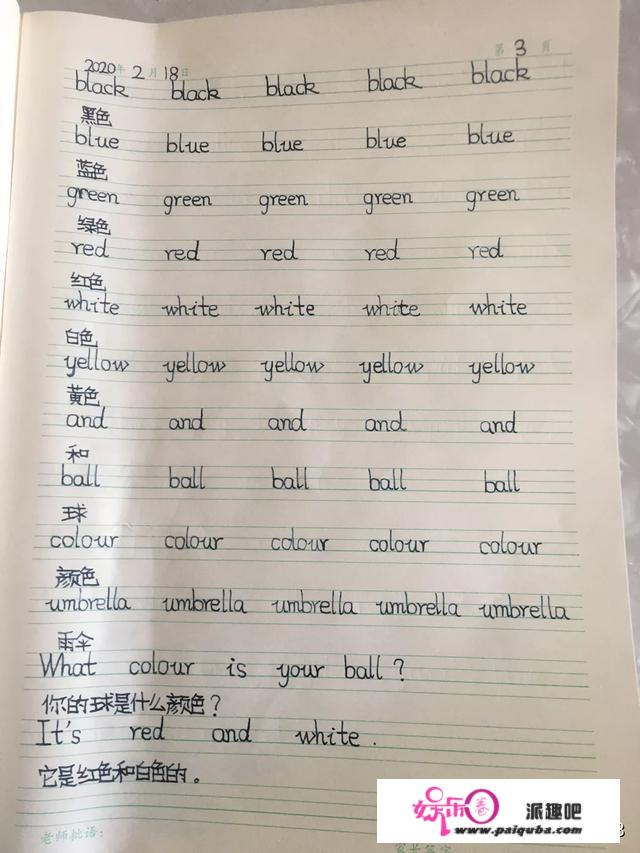 第 3 页
2020年 2月 18日
black black black black black
黑色
blue blue blue blue blue
蓝色
green green green green green
绿色
red red red red red
红色
white white white white white
白色
yellow yellow yellow yellow yellow
黄色
and and and and and
和
ball ball ball ball ball
球
colour colour colour colour colour
颜色
umbrella umbrella umbrella umbrella umbrella
雨伞
What colour is your ball?
你的球是什么颜色?
It's red and white.
它是红色和白色的。
老师批语:
家长签字
娱乐圈 派趣吧
www.paiquba.com